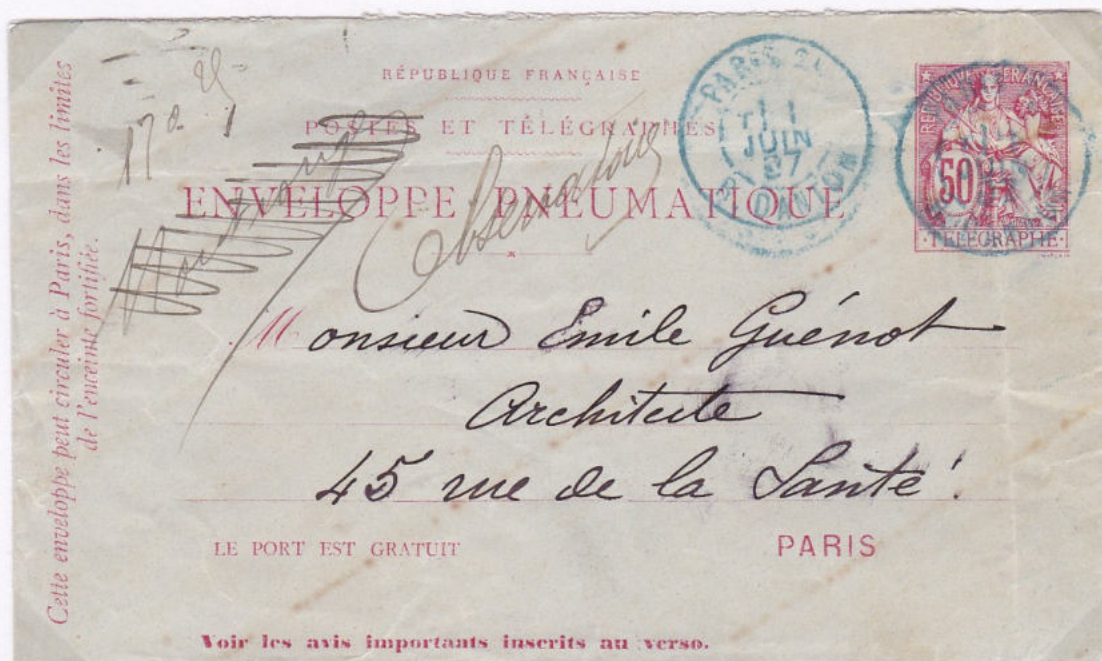 Cette enveloppe peut circuler à Paris, dans les limites
de l'enceinte fortifiée.
17
RÉPUBLIQUE FRANÇAISE
POSTES ET TÉLÉGRAPHES
ENVELOPPE PNEUMATIQUE
Observatoire
PARIS
1
JUIN
DANTON
RÉPUBLIQUE FRANÇAISE
50
TÉLÉGRAPHE
Monsieur Emile Guénot
Architecte
45 rue de la Santé
LE PORT EST GRATUIT
PARIS
Voir les avis importants inscrits au verso.